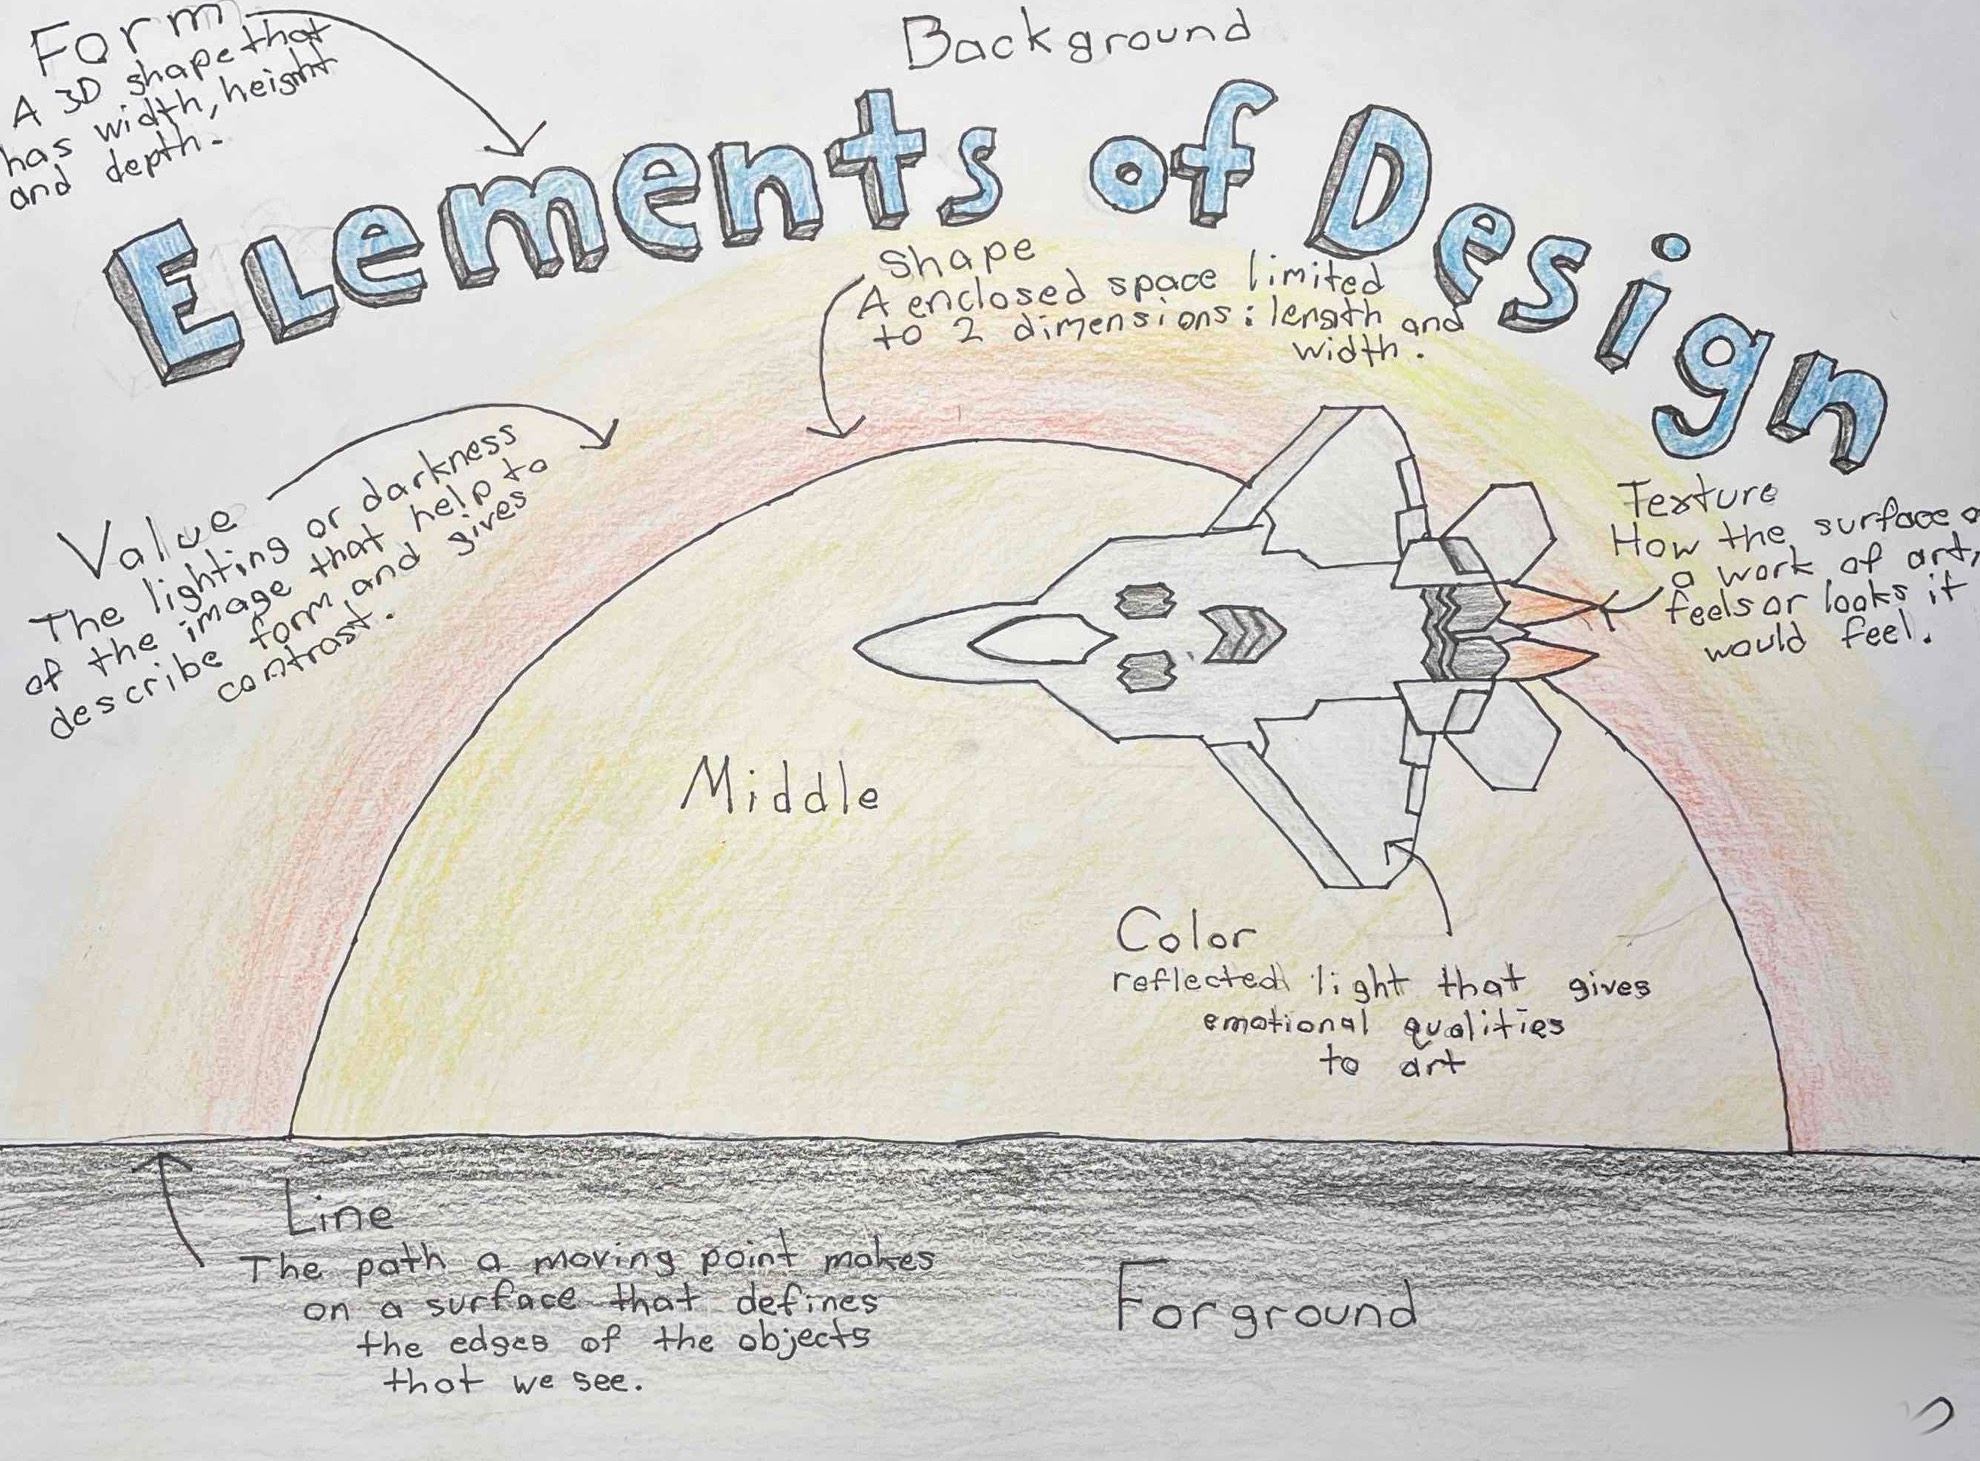 Form
A 3D shape that
has width, height
and depth.
Background
Elements of Design
Shape
A enclosed space limited
to 2 dimensions: length and
width.
Value
The lighting or darkness
of the image that help to
describe form and gives
contrast.
Texture
How the surface
a work of art,
feels or looks it
would feel.
Middle
Color
reflected light that gives
emotional qualities
to art
Line
The path a moving point makes
on a surface that defines
the edges of the objects
that we see.
Forground